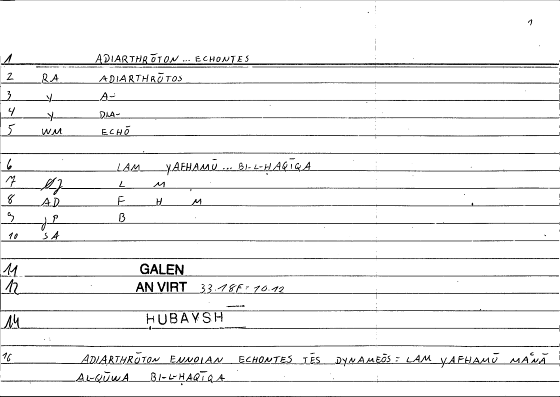 1
1 ADIARTHRŌTON ... ECHONTES
2 RA ADIARTHRŌTOS
3 y A-
4 y DIA-
5 WM ECHŌ
6 LAM YAFHAMŪ ... BI-L-ḤAQĪQA
7 L M
8 AD F H M
9 jP B
10 SA
11 GALEN
12 AN VIRT 33.18F = 10.12
14 ḤUBAYSH
16 ADIARTHRŌTON ENNOIAN ECHONTES TĒS DYNAMEŌS = LAM YAFHAMŪ MAʿNĀ
AL-QŪWA BI-L-ḤAQĪQA